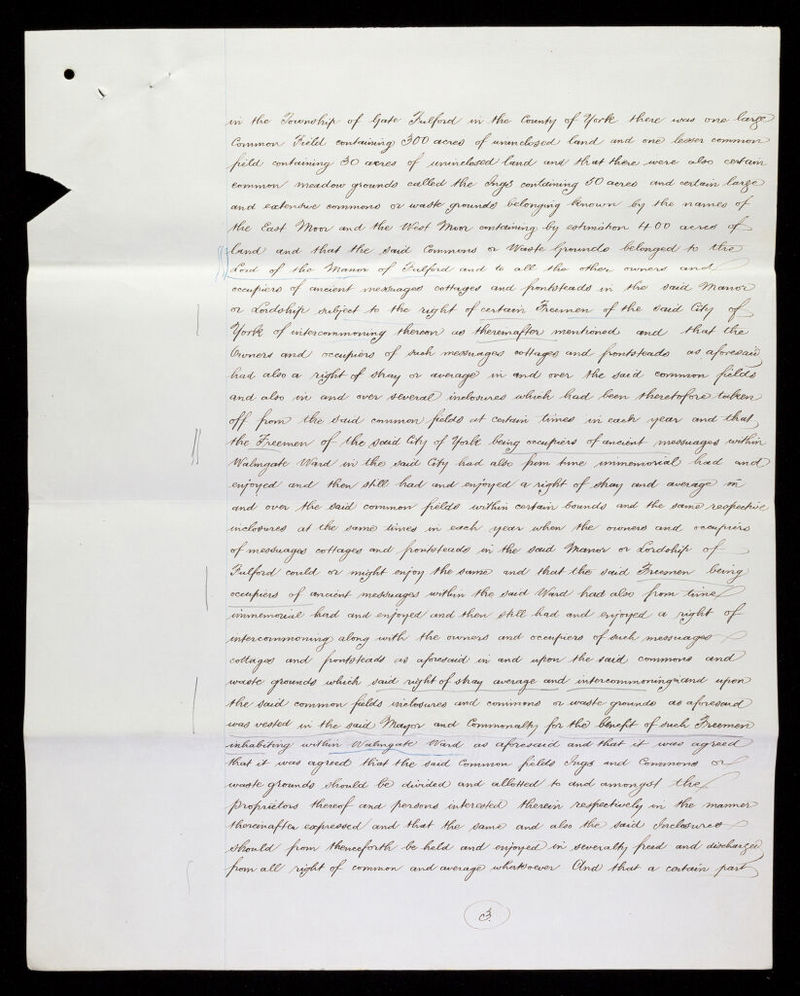 in the Township of Gate Fulford in the County of York there was one large
Common Field containing 300 acres of uninclosed land and one lesser common
field containing 30 acres of uninclosed land and that there were also certain
common meadow grounds called the Ings containing 50 acres and certain large
and extensive commons or waste grounds belonging known by the names of
the East Moor and the West Moor containing by estimation 400 acres of
land and that the said Commons or Waste Grounds belonged to the
Lord of the Manor of Fulford and to all the other owners and
occupiers of ancient messuages cottages and frontsteads in the said Manor
or Lordship subject to the right of certain Freemen of the said City of
York of intercommoning thereon as thereinafter mentioned and that the
Owners and occupiers of such messuages cottages and frontsteads as aforesaid
had also a right of stray or average in and over the said common fields
and also in and over several inclosures which had been theretofore taken
off from the said common fields at certain times in each year and that
the Freemen of the said City of York being occupiers of ancient messuages within
Walmgate Ward in the said City had also from time immemorial had and
enjoyed and then still had and enjoyed a right of stray and average in
and over the said common fields within certain bounds and the same respective
inclosures at the same times in each year when the owners and occupiers
of messuages cottages and frontsteads in the said Manor or Lordship of
Fulford could or might enjoy the same and that the said Freemen being
occupiers of ancient messuages within the said Ward had also from time
immemorial had and enjoyed and then still had and enjoyed a right of
intercommoning along with the owners and occupiers of such messuages
cottages and frontsteads as aforesaid in and upon the said commons and
waste grounds which said right of stray average and intercommoning in and upon
the said common fields inclosures and commons or waste grounds as aforesaid
was vested in the said Mayor and Commonalty for the benefit of such Freemen
inhabiting within Walmgate Ward as aforesaid and that it was agreed
that it was agreed that the said Common fields Ings and Commons or
waste grounds should be divided and allotted to and amongst the
proprietors thereof and persons interested therein respectively in the manner
thereinafter expressed and that the same and also the said Inclosures
should from thenceforth be held and enjoyed in severalty freed and discharged
from all right of common and average whatsoever And that a certain part
3